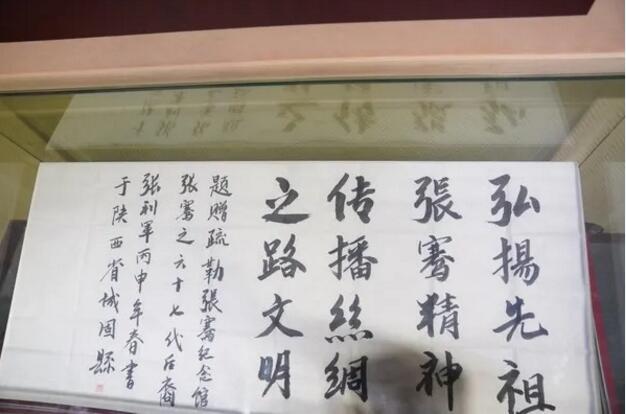 弘揚先祖
張騫精神
传播絲綢
之路文明
題贈疏勒張騫纪念馆
張騫之六十七代后裔
張利軍丙申年春書
于陕西省城固縣